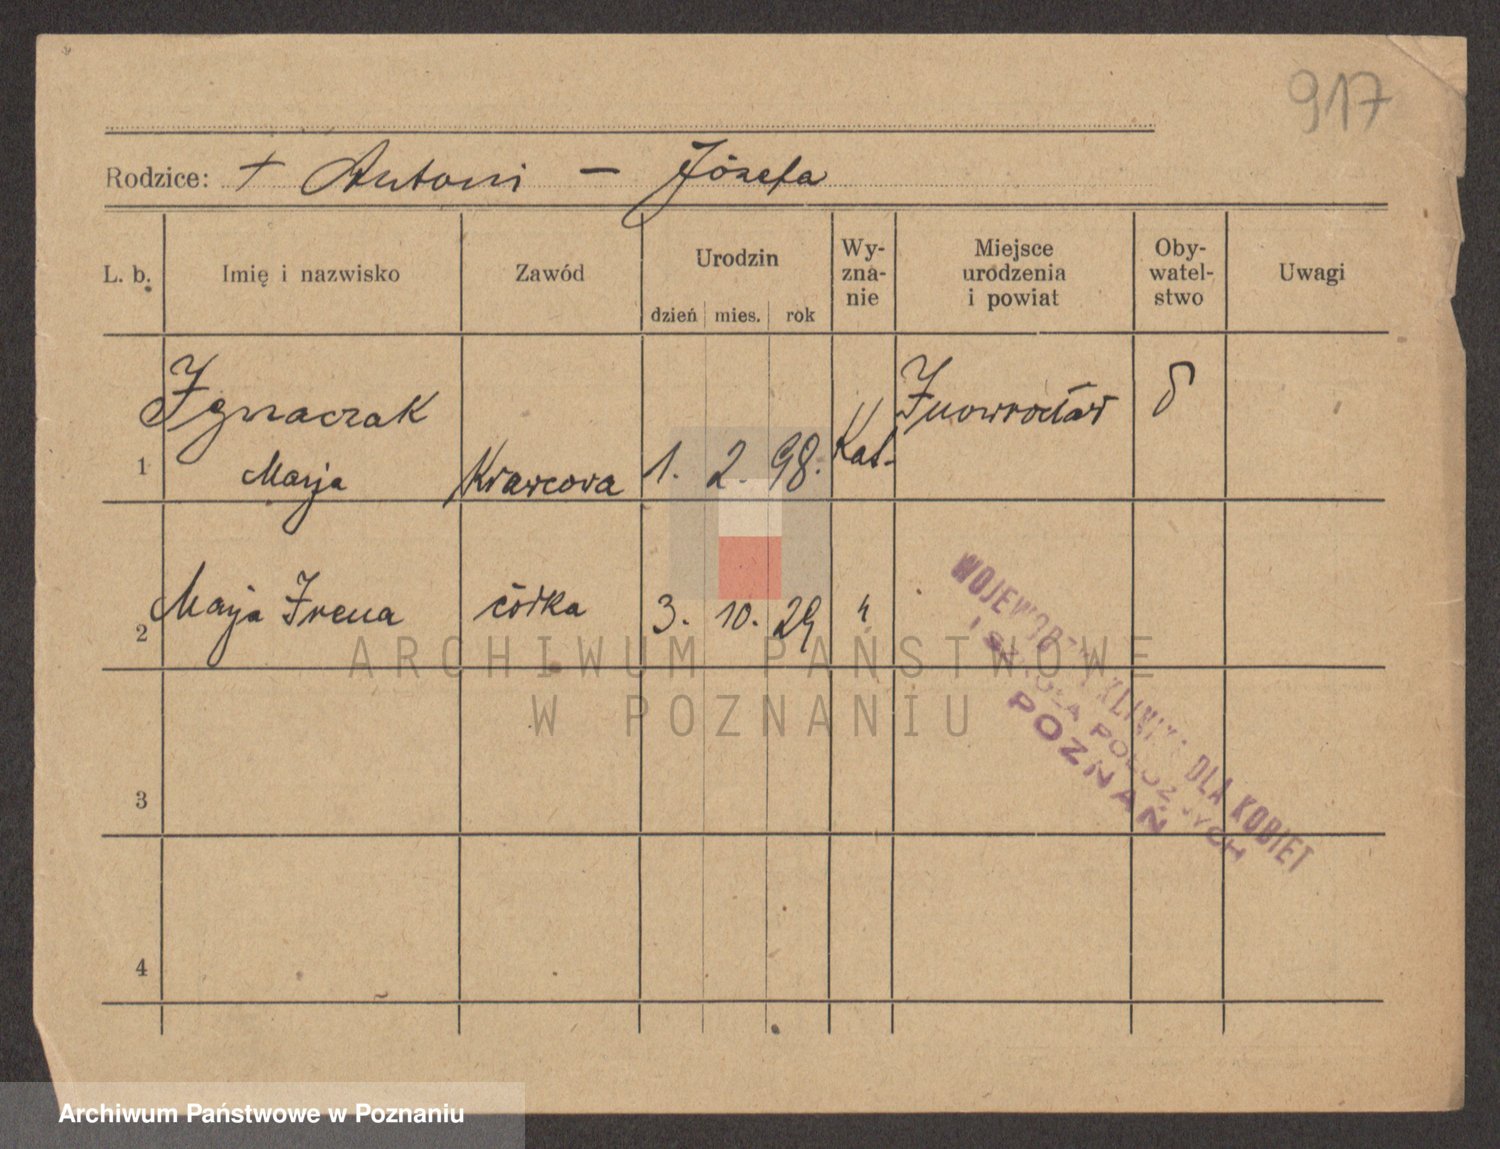 917
Rodzice: + Antoni – Józefa
L. b. Imię i nazwisko Zawód Urodzin dzień mies. rok Wy-zna-nie Miejsce urodzenia i powiat Oby-watel-stwo Uwagi
Ignaczak Inowrocław
1 Marja Krawcowa 1. 2. 98. Kat.
2 Marja Irena córka 3. 10. 29 "
3
4
WOJEWÓDZKA KLINIKA DLA KOBIET
I SZKOŁA POŁOŻNYCH
POZNAŃ
ARCHIWUM PAŃSTWOWE
W POZNANIU
Archiwum Państwowe w Poznaniu